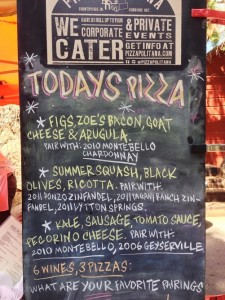 WE
CATER
HAVE US ROLL UP TO YOUR
CORPORATE
& PRIVATE
EVENTS
GET INFO AT
PIZZAPOLITANA.COM
TODAYS PIZZA
* FIGS, ZOE'S BACON, GOAT
CHEESE & ARUGULA.
PAIR WITH: 2010 MONTEBELLO
CHARDONNAY
* SUMMER SQUASH, BLACK
OLIVES, RICOTTA. PAIR WITH:
ZINFANDEL, 2011 RANCH ZIN-
FANDEL, 2011 LYTTON SPRINGS.
* KALE, SAUSAGE, TOMATO SAUCE,
PECORINO CHEESE. PAIR WITH:
2010 MONTEBELLO, 2006 GEYSERVILLE
6 WINES, 3 PIZZAS:
WHAT ARE YOUR FAVORITE PAIRINGS